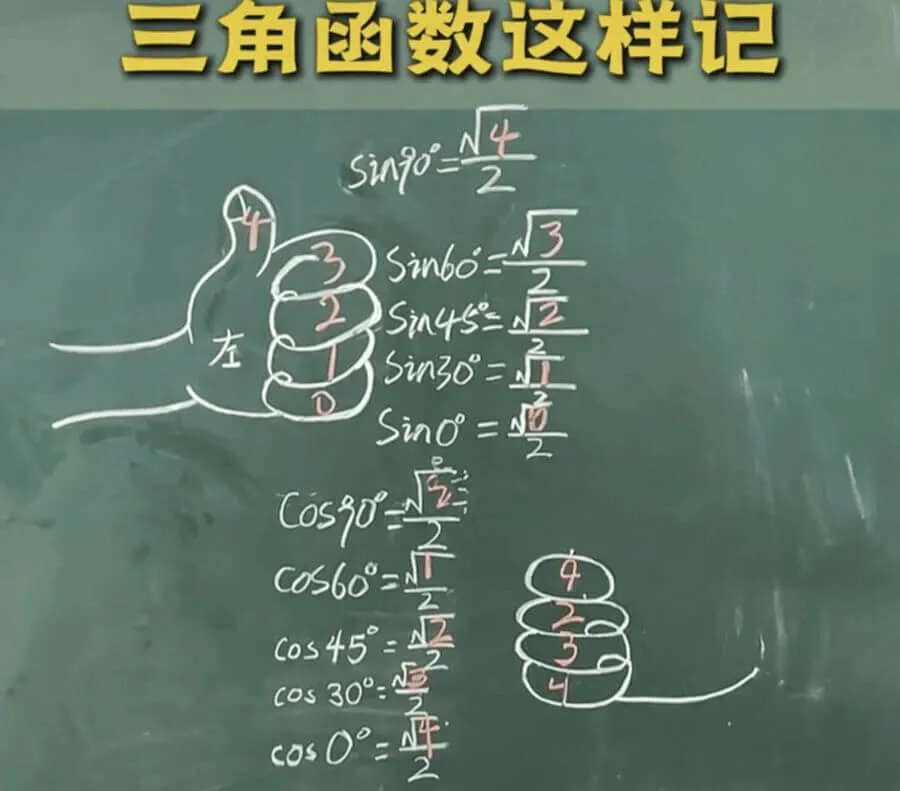 三角函数这样记
sin90°=√4/2
4
3 sin60°=√3/2
2 sin45°=√2/2
左
1 sin30°=√1/2
0 sin0°=√0/2
cos90°= /2
cos60°=√1/2
cos45°=√2/2
cos30°=√3/2
cos0°=√4/2
4
2
3
4